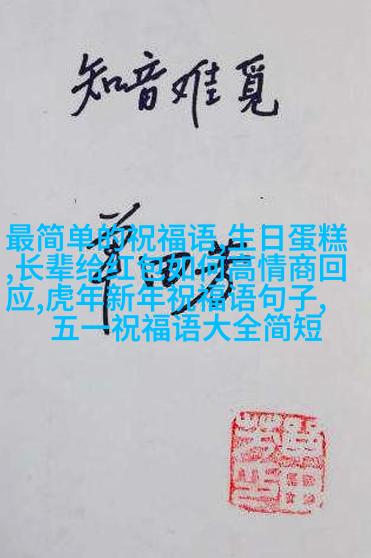 知音难觅
单田芳
最简单的祝福语,生日蛋糕
,长辈给红包如何高情商回
应,虎年新年祝福语句子,
五一祝福语大全简短